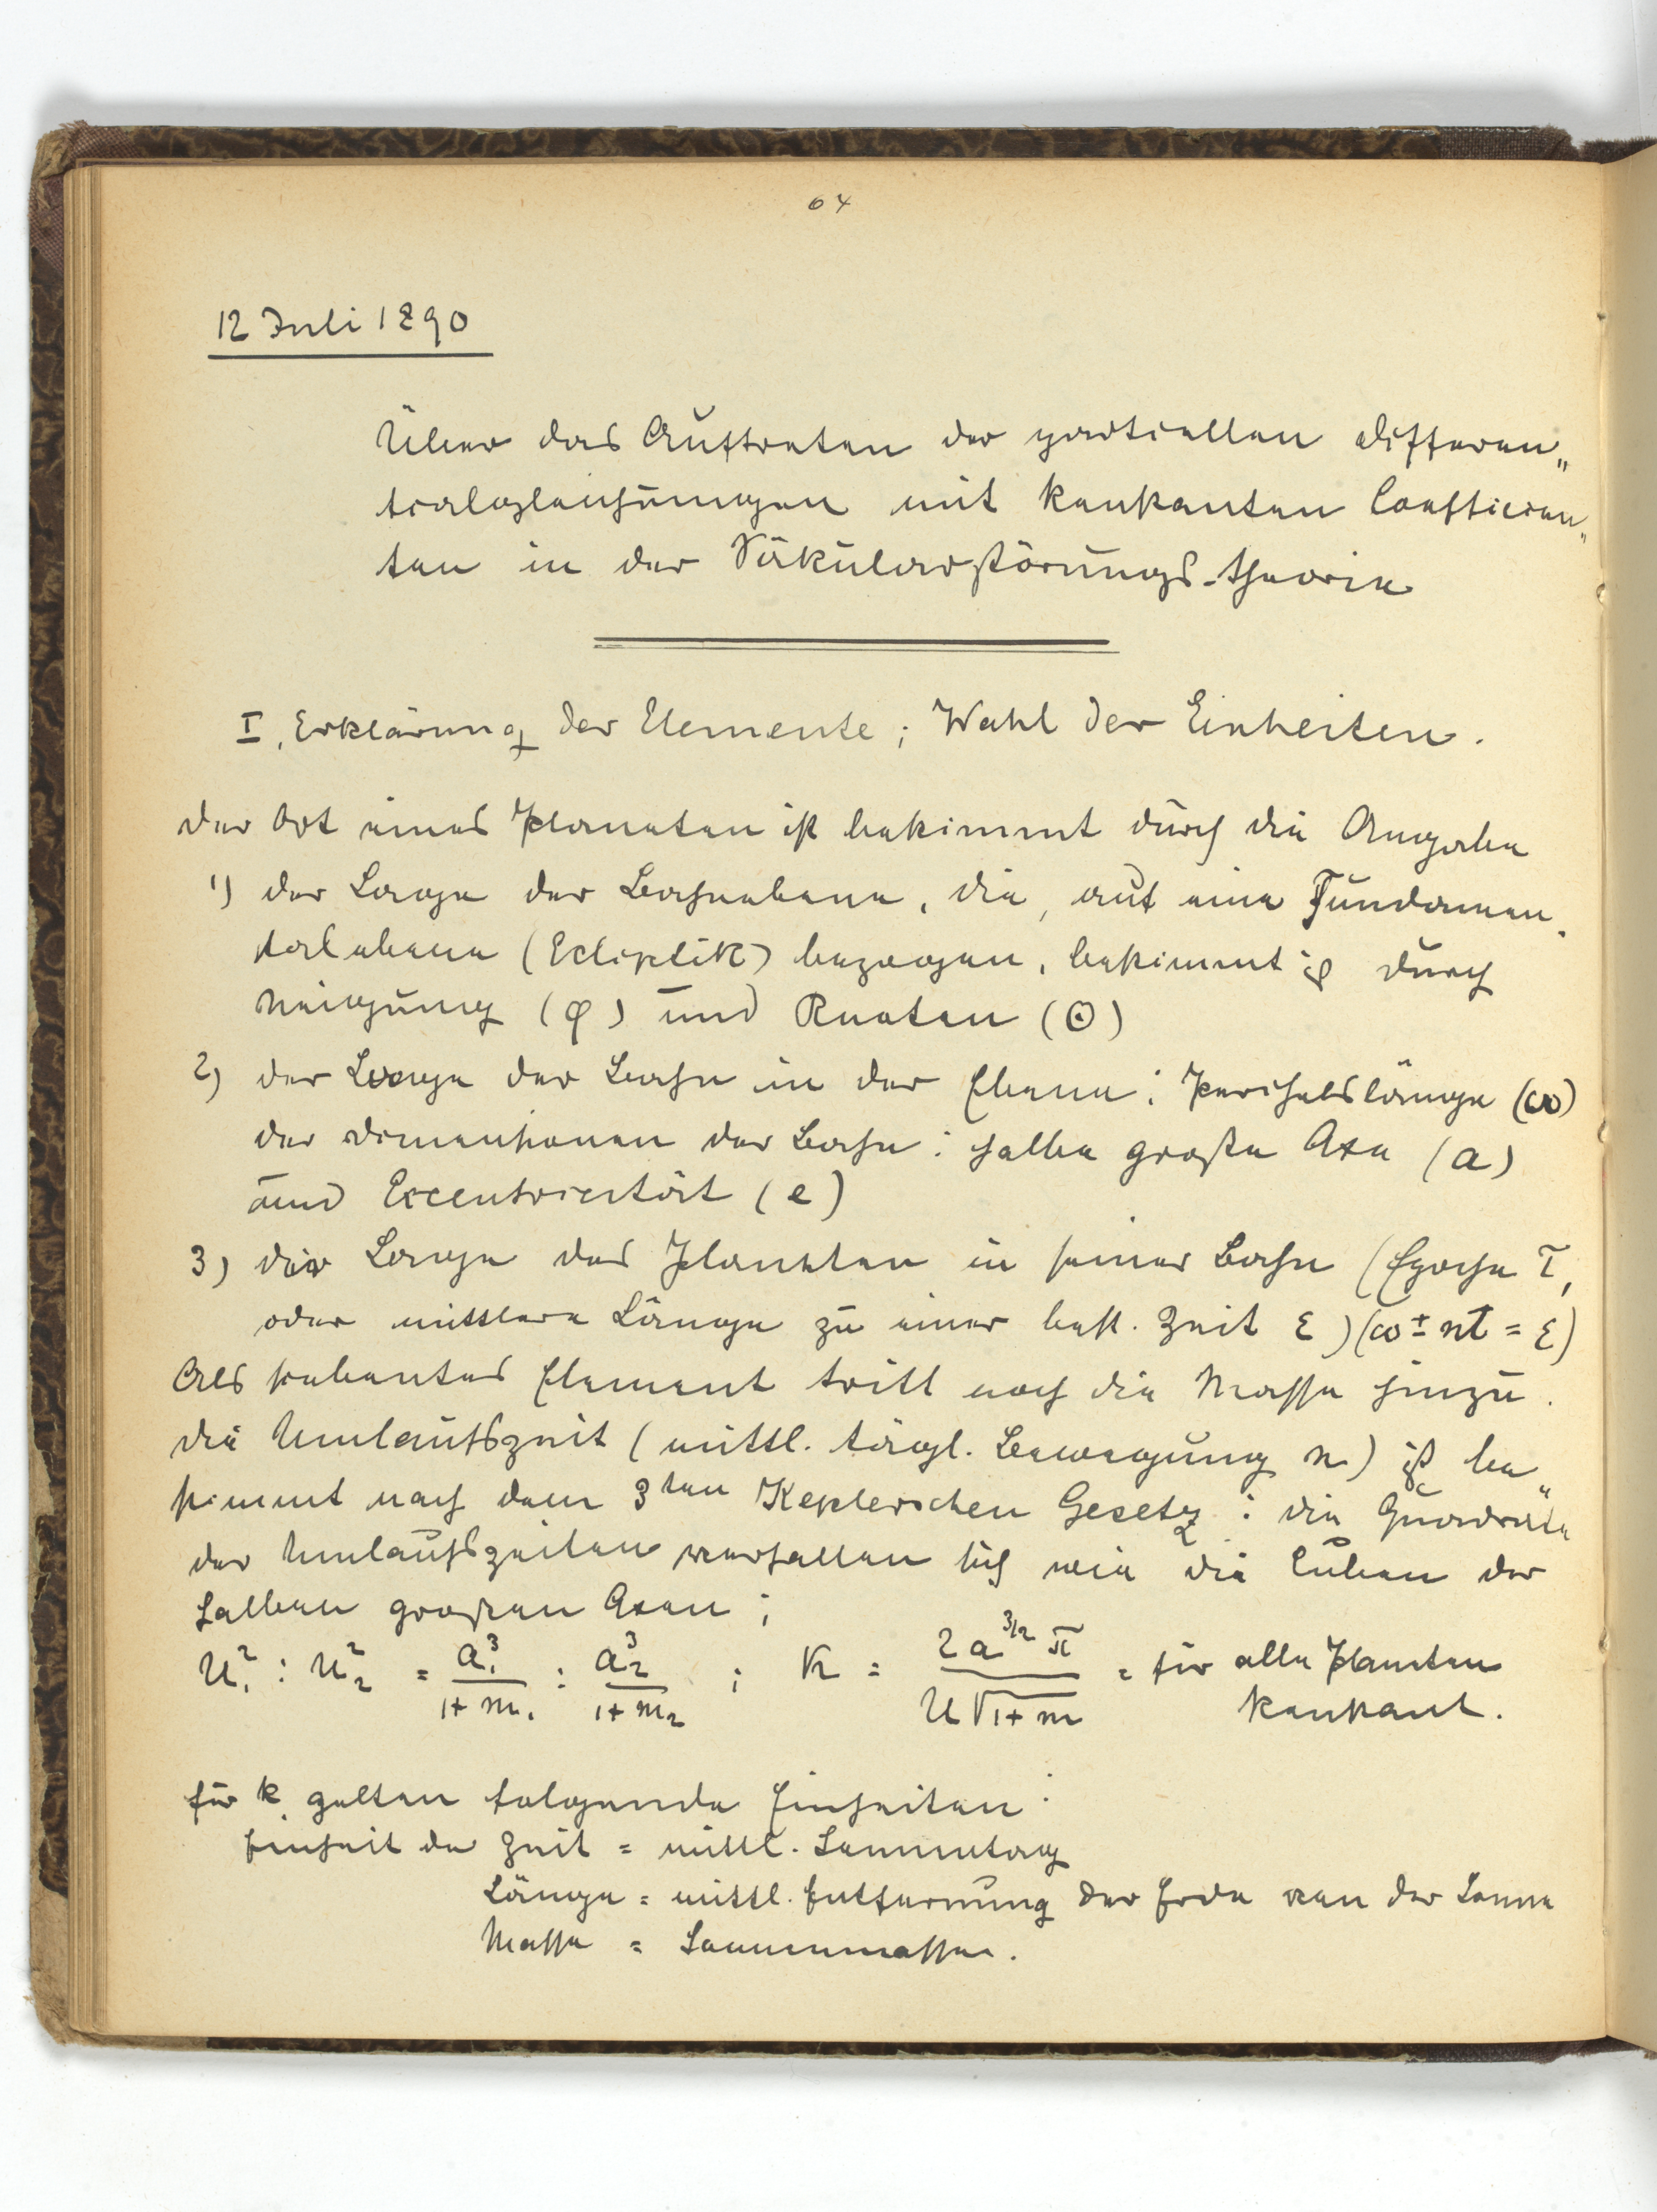 64
12 Juli 1890
Über das Auftreten der partiellen Differen„
tialgleichungen mit konstanten Coefficien„
ten in der Säkularstörungs-theorie
I, Erklärung der Elemente; Wahl der Einheiten.
Der Ort eines Planeten ist bestimmt durch die Angabe
1) der Lage der Bahnebene, die, auf eine Fundamen-
talebene (Ecliptik) bezogen, bestimmt ist durch
Neigung (φ) und Knoten (☉)
2) der Lage der Bahn in der Ebene: Perihelslänge (ω)
der Dimensionen der Bahn: halbe große Axe (a)
und Excentricität (e)
3) der Lage des Planeten in seiner Bahn (Epoche T,
oder mittlere Länge zu einer best. Zeit ε) (ω ± nT = ε)
Als siebentes Element tritt noch die Masse hinzu.
Die Umlaufszeit (mittl. tägl. Bewegung n) ist be„
stimmt nach dem 3ten Keplerschen Gesetz: die Quadrate
der Umlaufszeiten verhalten sich wie die Cuben der
halben großen Axen;
U₁² : U₂² = a₁³/(1+m₁) : a₂³/(1+m₂) ; k = 2a^{3/2}π/(U√(1+m)) = für alle Planeten
konstant.
für k gelten folgende Einheiten:
Einheit der Zeit = mittl. Sonnentag
Länge = mittl. Entfernung der Erde von der Sonne
Masse = Sonnenmasse.